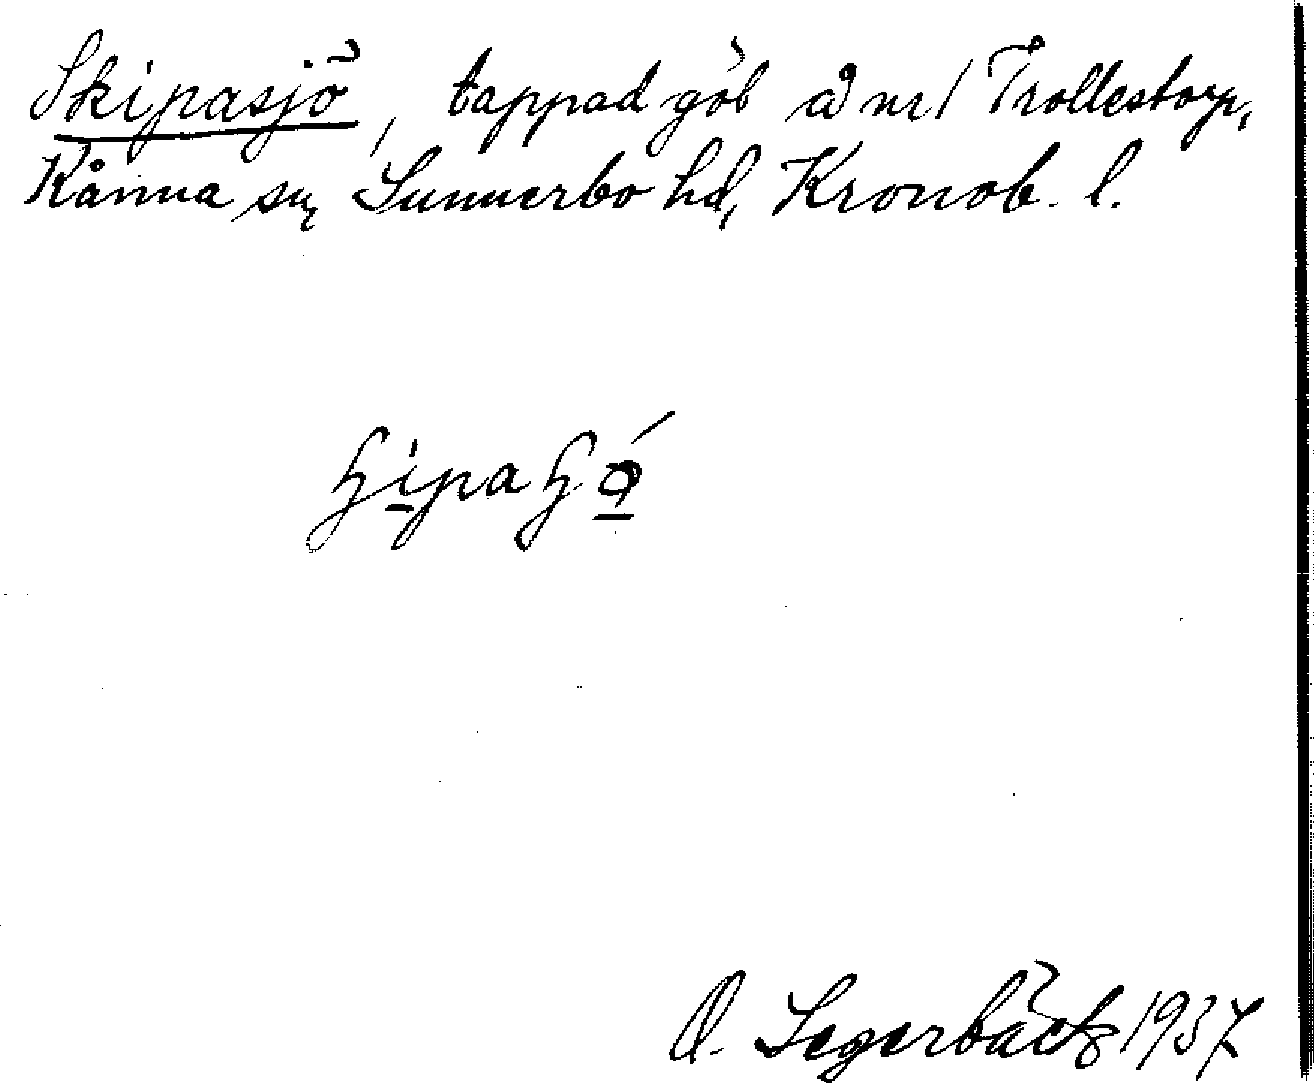 Skipasjö, tappad göl å nr 1 Trollestorp,
Kånna sn, Sunnerbo hd, Kronob. l.
ɧipaɧǿ
O. Segerbäck 1937